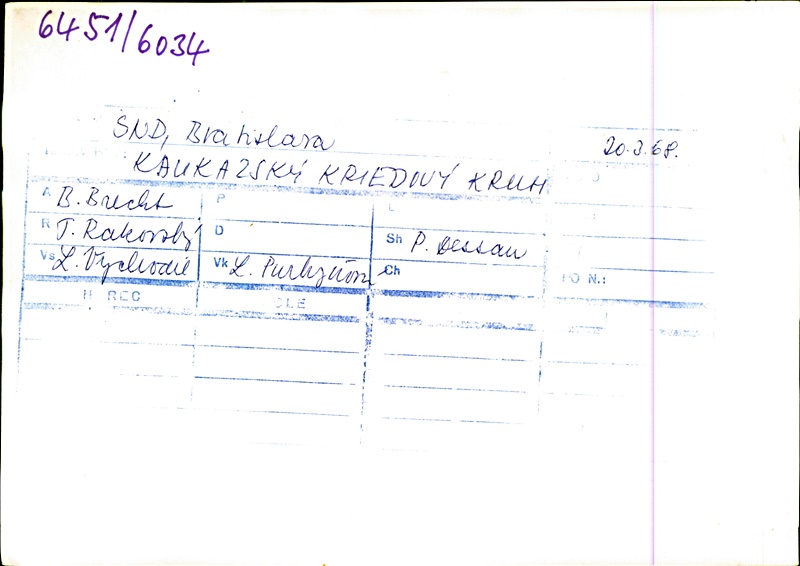 6451/6034
SND, Bratislava 20.3.68.
KAUKAZSKÝ KRIEDOVÝ KRUH
A B. Brecht P L
R T. Rakovský D Sh P. Dessau
Vs L. Vychodil Vk L. Purkyňová Ch PO N.:
H REC